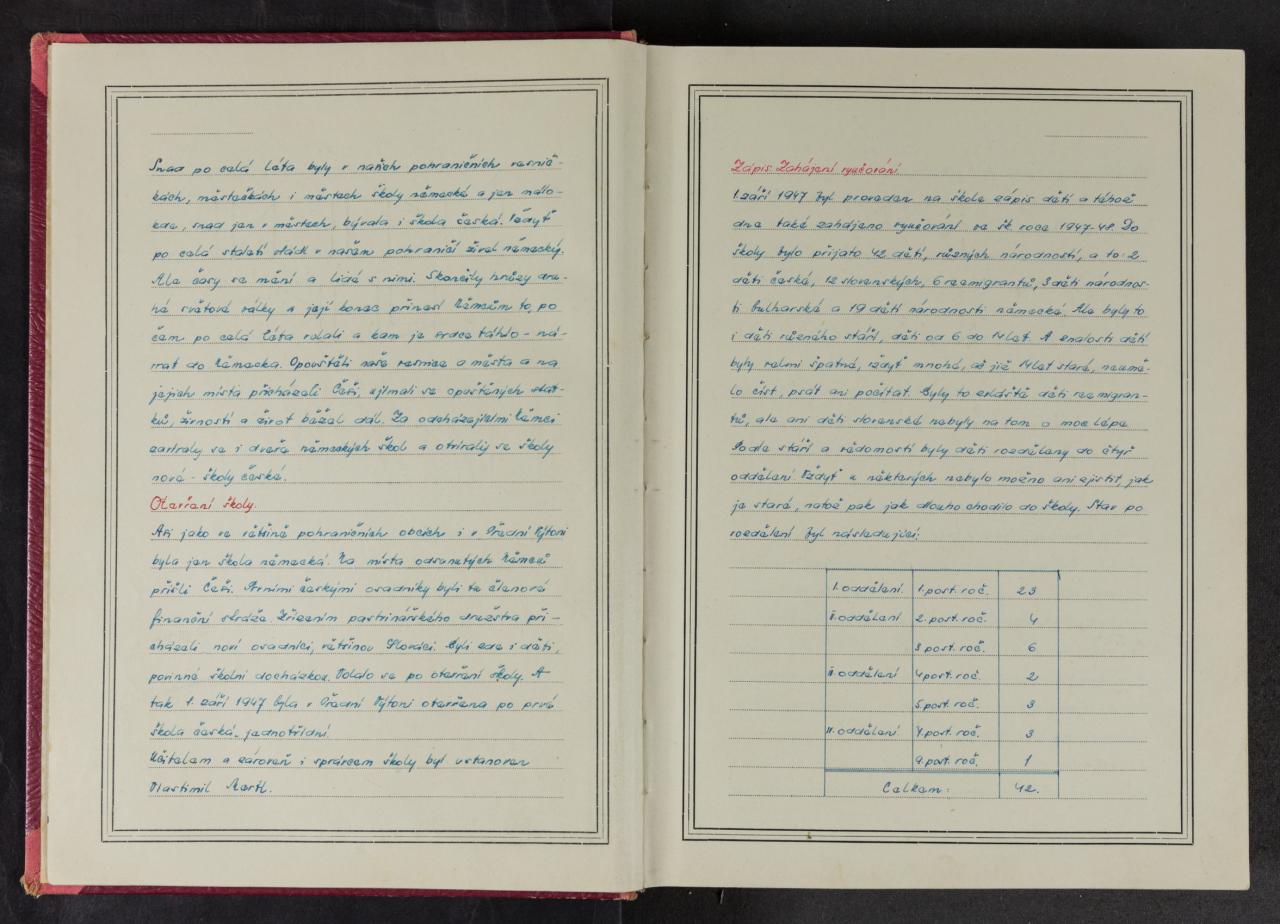 Snad po celá léta byly v našich pohraničních vesnič-
kách, městečkách i městech školy německé a jen málo-
kde, snad jen v městech, bývala i škola česká. Vždyť
po celá staletí vládl v našem pohraničí živel německý.
Ale časy se mění a lidé s nimi. Skončily hrůzy dru-
hé světové války a její konec přinesl Němcům to, po
čem po celá léta volali a kam je srdce táhlo - ná-
vrat do Německa. Opouštěli naše vesnice a města a na
jejich místa přicházeli Češi, ujímali se opuštěných stat-
ků, živností a život běžel dál. Za odcházejícími Němci
zavíraly se i dveře německých škol a otvíraly se školy
nové - školy české.
Otevření školy.
Asi jako ve většině pohraničních obcích i v Přední Výtoni
byla jen škola německá. Na místa odsunutých Němců
přišli Češi. Prvními českými osadníky byli tu členové
finanční stráže. Zřízením pastvinářského družstva při-
cházeli noví osadníci, většinou Slováci. Byli zde i děti,
povinné školní docházkou. Volalo se po otevření školy. A
tak 1. září 1947 byla v Přední Výtoni otevřena po prvé
škola česká - jednotřídní.
Učitelem a zároveň i správcem školy byl ustanoven
Vlastimil Bartl.
Zápis. Zahájení vyučování.
1. září 1947 byl proveden na škole zápis dětí a téhož
dne také zahájeno vyučování ve šk. roce 1947-48. Do
školy bylo přijato 42 dětí, různých národností, a to: 2
děti české, 12 slovenských, 6 reemigrantů, 3 děti národnos-
ti bulharské a 19 dětí národnosti německé. Ale byly to
i děti různého stáří, děti od 6 do 14 let. A znalosti dětí
byly velmi špatné, vždyť mnohé, ač již 14 let staré, neumě-
lo číst, psát ani počítat. Byly to zvláště děti reemigran-
tů, ale ani děti slovenské nebyly na tom o moc lépe.
Podle stáří a vědomostí byly děti rozděleny do čtyř
oddělení. Vždyť u některých nebylo možno ani zjistit, jak
je staré, natož pak jak dlouho chodilo do školy. Stav po
rozdělení byl následující:
I. oddělení. 1. post. roč. 23
II. oddělení 2. post. roč. 4
3 post. roč. 6
III. oddělení 4 post. roč. 2
5. post. roč. 3
IV. oddělení 7. post. roč. 3
9. post. roč. 1
Celkem: 42.